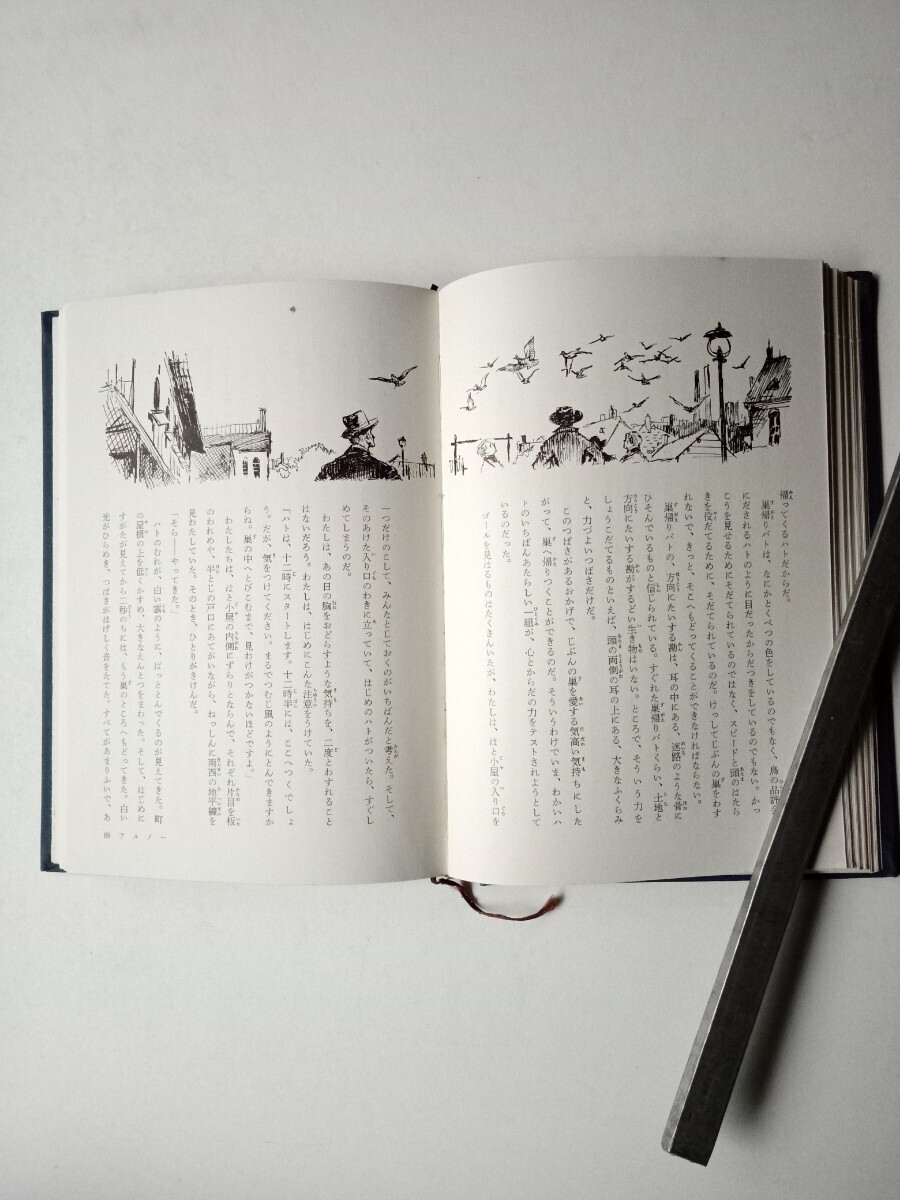 帰ってくるハトだからだ。
巣帰りバトは、なにかとくべつの色をしているのでもなく、鳥の品評
にだされるハトのように目だったからだつきをしているのでもない。かっ
こうを見せるためにそだてられているのではなく、スピードと頭のはたら
きを役だてるために、そだてられているのだ。けっしてじぶんの巣をわす
れないで、きっと、そこへもどってくることができなければならない。
巣帰りバトの、方向にたいする勘は、耳の中にある、迷路のような骨に
ひそんでいるものと信じられている。すぐれた巣帰りバトくらい、土地と
方向にたいする勘がするどい生き物はいない。ところで、そういう力を
しょうこだてるものといえば、頭の両側の耳の上にある、大きなふくらみ
と、力づよいつばさだけだ。
このつばさがあるおかげで、じぶんの巣を愛する気高い気持ちにした
がって、巣へ帰りつくことができるのだ。そういうわけでいま、わかいハ
トのいちばんあたらしい一組が、心とからだの力をテストされようとして
いるのだった。
ゴールを見はるものはたくさんいたが、わたしは、はと小屋の入り口を
一つだけのこして、みんなとじておくのがいちばんだと考えた。そして、
そのあけた入り口のわきに立っていて、はじめのハトがついたら、すぐし
めてしまうのだ。
わたしは、あの日の胸をおどらすような気持ちを、二度とわすれること
はないだろう。わたしは、はじめにこんな注意をうけていた。
「ハトは、十二時にスタートします。十二時半には、ここへつくでしょ
う。だが、気をつけてください。まるでつむじ風のようにとんできますか
らね。巣の中へとびこむまで、見わけがつかないほどですよ。」
わたしたちは、はと小屋の内側にずらりとならんで、それぞれ片目を板
のわれめや、半とじの戸口にあてがいながら、ねっしんに南西の地平線を
見わたしていた。そのとき、ひとりがさけんだ。
「そら――やってきた。」
ハトのむれが、白い雲のように、ぱっととんでくるのが見えてきた。町
の屋根の上を低くかすめ、大きなえんとつをまわった。そして、はじめに
すがたが見えてから二秒のちには、もう巣のところへもどってきた。白い
光がひらめき、つばさがはげしく音をたてた。すべてがあまりふいで、あ
アルノー